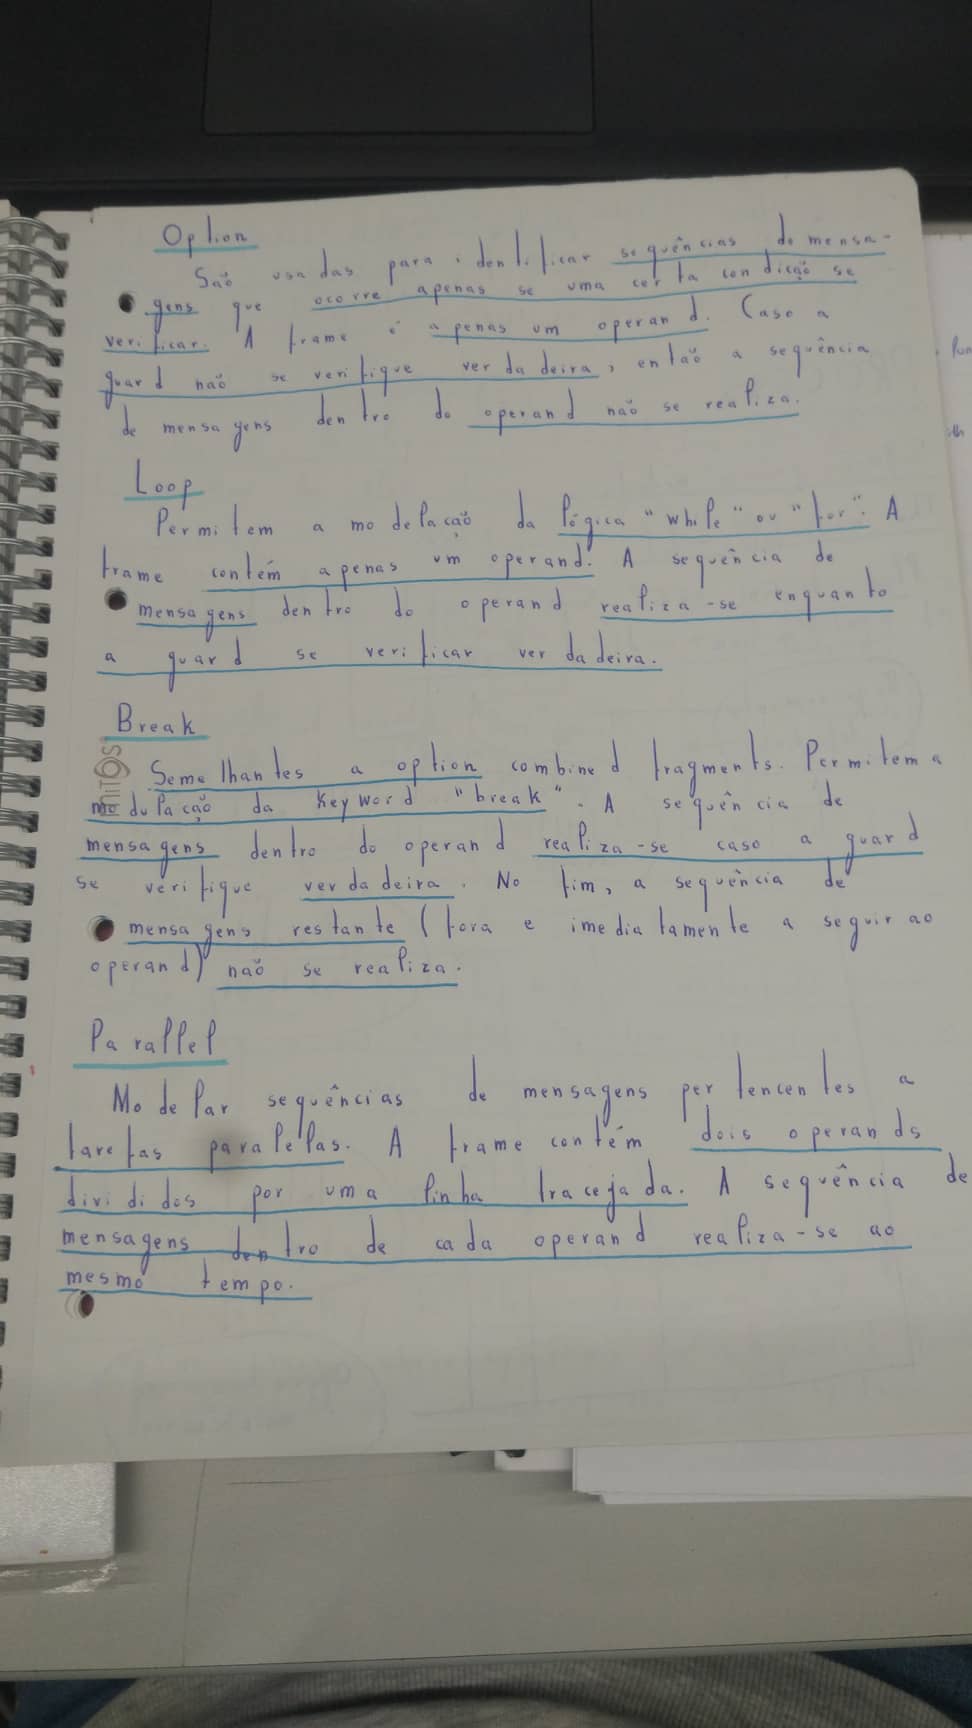 Option
São usadas para identificar sequências de mensa-
gens que ocorre apenas se uma certa condição se
verificar. A frame é apenas um operand. Caso a
guard não se verifique verdadeira, então a sequência
de mensagens dentro do operand não se realiza.
Loop
Permitem a modelação da lógica "while" ou "for". A
frame contém apenas um operand. A sequência de
mensagens dentro do operand realiza-se enquanto
a guard se verificar verdadeira.
Break
Semelhantes a option combined fragments. Permitem a
modulação da keyword "break". A sequência de
mensagens dentro do operand realiza-se caso a guard
se verifique verdadeira. No fim, a sequência de
mensagens restante (fora e imediatamente a seguir ao
operand) não se realiza.
Parallel
Modelar sequências de mensagens pertencentes a
tarefas paralellas. A frame contém dois operands
divididos por uma linha tracejada. A sequência de
mensagens dentro de cada operand realiza-se ao
mesmo tempo.
mitos